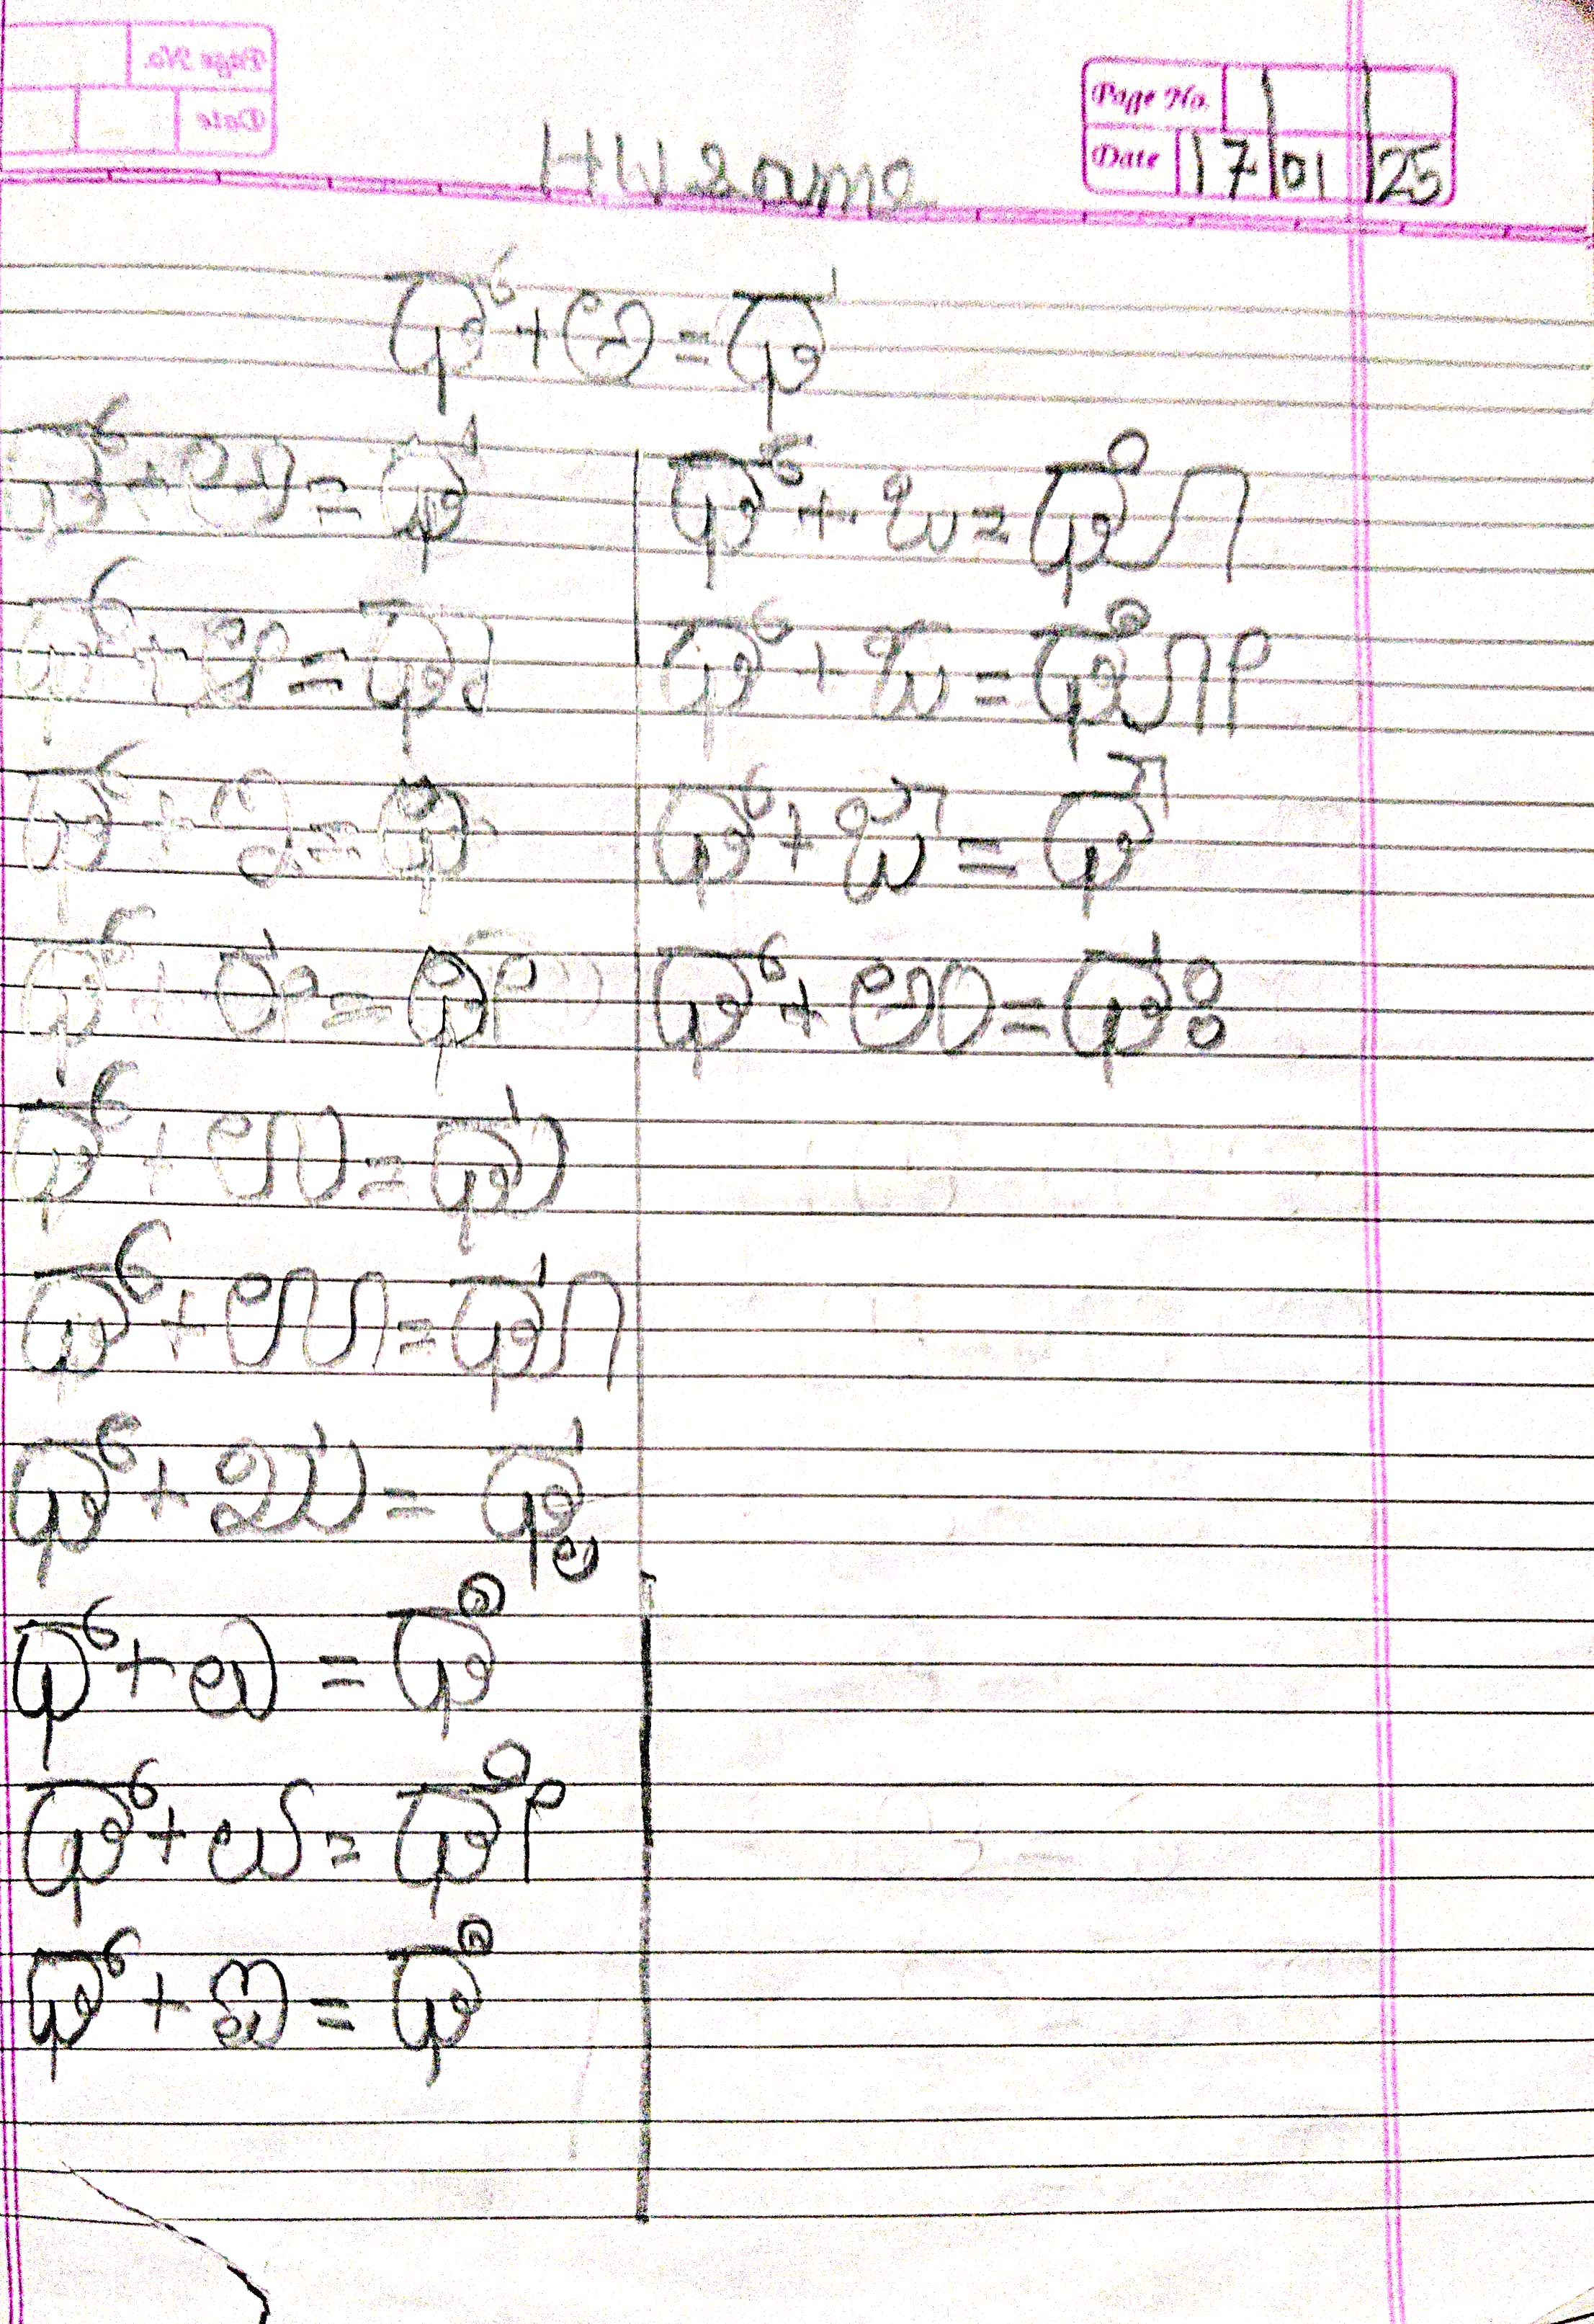 HW Same
Page No.
Date 17/01/25
ಛ್+ಅ=ಛ
ಛ್+ಅ=ಛ
ಛ್+ಆ=ಛಾ
ಛ್+ಇ=ಛಿ
ಛ್+ಈ=ಛೀ
ಛ್+ಉ=ಛು
ಛ್+ಊ=ಛೂ
ಛ್+ಋ=ಛೃ
ಛ್+ಎ=ಛೆ
ಛ್+ಏ=ಛೇ
ಛ್+ಐ=ಛೆ
ಛ್+ಒ=ಛೊ
ಛ್+ಓ=ಛೋ
ಛ್+ಔ=ಛೌ
ಛ್+ಅಂ=ಛಃ